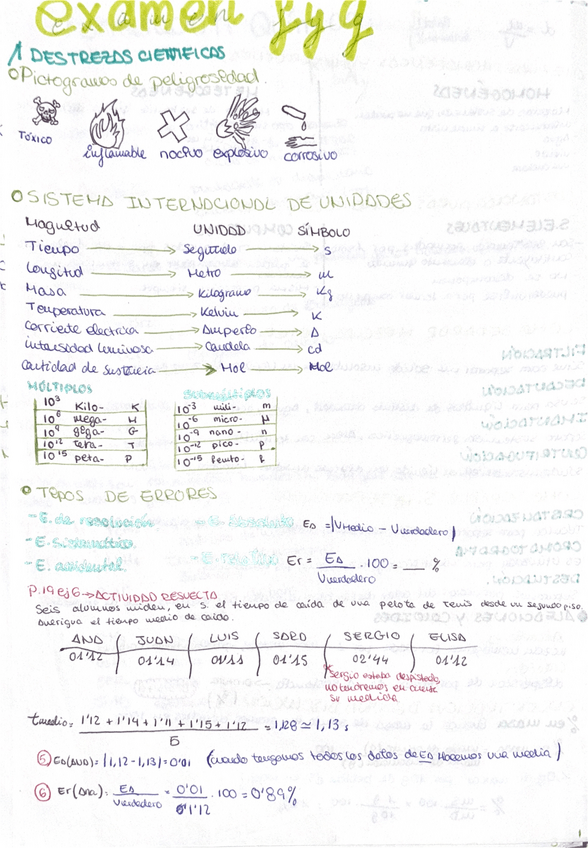 examen fyq
1 DESTREZAS CIENTÍFICAS
Pictogramas de peligrosidad.
Tóxico inflamable nocivo explosivo corrosivo
SISTEMA INTERNACIONAL DE UNIDADES
Magnitud UNIDAD SÍMBOLO
Tiempo → Segundo → s
Longitud → Metro → m
Masa → Kilogramo → Kg
Temperatura → Kelvin → K
Corriente electrica → Amperio → A
intensidad luminosa → Candela → cd
Cantidad de sustancia → Mol → Mol
MÚLTIPLOS
10³ Kilo- K
10⁶ Mega- M
10⁹ giga- G
10¹² tera- T
10¹⁵ peta- P
Submúltiplos
10⁻³ mili- m
10⁻⁶ micro- M
10⁻⁹ nano- n
10⁻¹² pico- P
10⁻¹⁵ femto- f
TIPOS DE ERRORES
- E. de resolución
- E. sistemático
- E. accidental
- E. absoluto Ea = |Vmedio - Vverdadero|
- E. relativo Er = Ea / Vverdadero . 100 = __ %
P.19 ej 6 → ACTIVIDAD RESUELTA
Seis alumnos miden, en s. el tiempo de caida de una pelota de tenis desde un segundo piso.
averigua el tiempo medio de caida.
ANA JUAN LUIS SARA SERGIO ELISA
01'12 01'14 01'11 01'15 02'44 01'12
Sergio estaba despistado,
no tendremos en cuenta
su medida
tmedio = 1'12 + 1'14 + 1'11 + 1'15 + 1'12 / 5 = 1,128 ≃ 1,13 s
5 Ea(ANA) = |1,12 - 1,13| = 0'01 (cuando tengamos todos los datos de Ea Hacemos una media)
6 Er(Ana) = Ea / Vverdadero = 0'01 / 1'12 . 100 = 0'89%
1